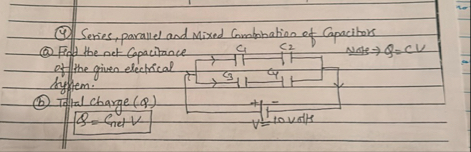 ④ Series, parallel and Mixed Combination of Capacitors
ⓐ Find the net Capacitance
of the given electrical
System.
C1 C2
Note → Q = CV
C3 C4
ⓑ Total Charge (Q)
Q = Cnet V
+ -
V = 10 volts